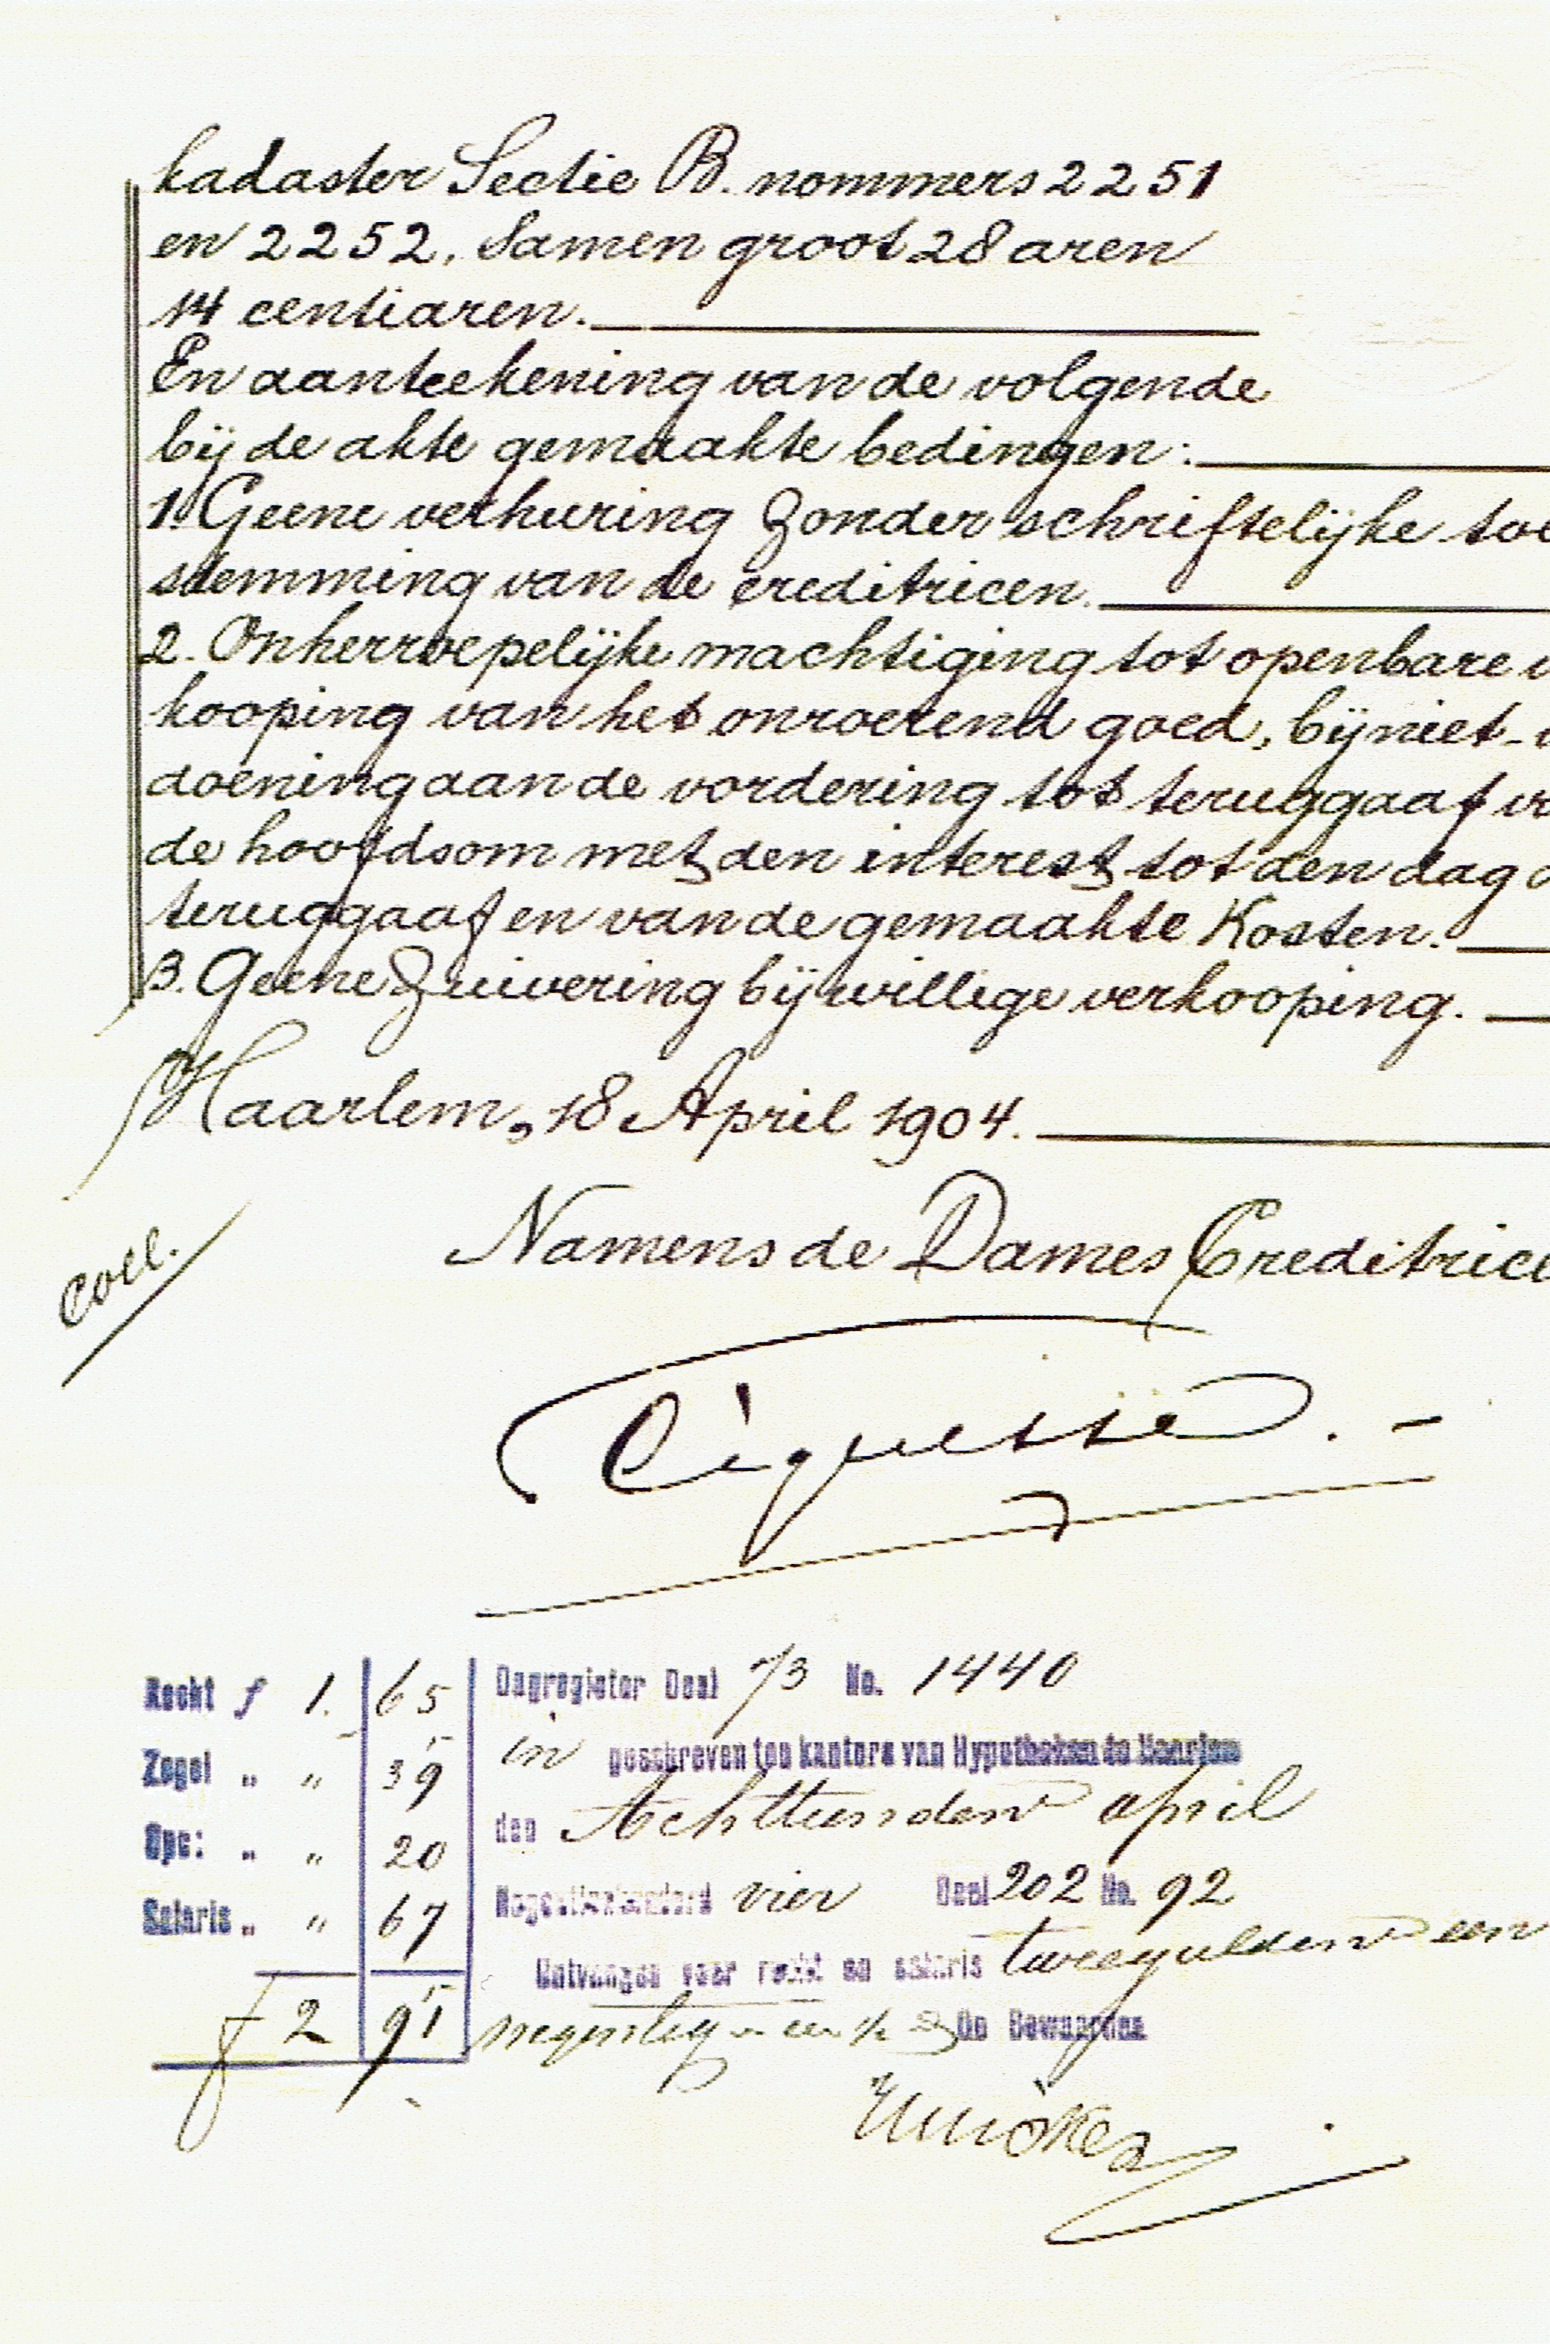 kadaster Sectie B. nommers 2251
en 2252, samen groot 28 aren
14 centiaren.
En aanteekening van de volgende
bij de akte gemaakte bedingen:
1. Geene verhuring zonder schriftelijke toe
stemming van de creditricen.
2. Onherroepelijke machtiging tot openbare v
kooping van het onroerend goed, bij niet-v
doening aan de vordering tot teruggaaf va
de hoofdsom met den interest tot den dag d
teruggaaf en van de gemaakte Kosten.
3. Geene Zuivering bij willige verkooping.
Haarlem, 18 April 1904.
coll.
Namens de Dames Creditrice
Recht f 1. 65
Zegel " " 39
Opc: " " 20
Salaris " " 67
f 2 91
Dagregister Deel 73 No. 1440
in geschreven ten kantore van Hypotheken te Haarlem
den Achttienden april
Negentienhonderd vier Deel 202 No. 92
Ontvangen voor recht en salaris twee gulden een
negentig De Bewaarder